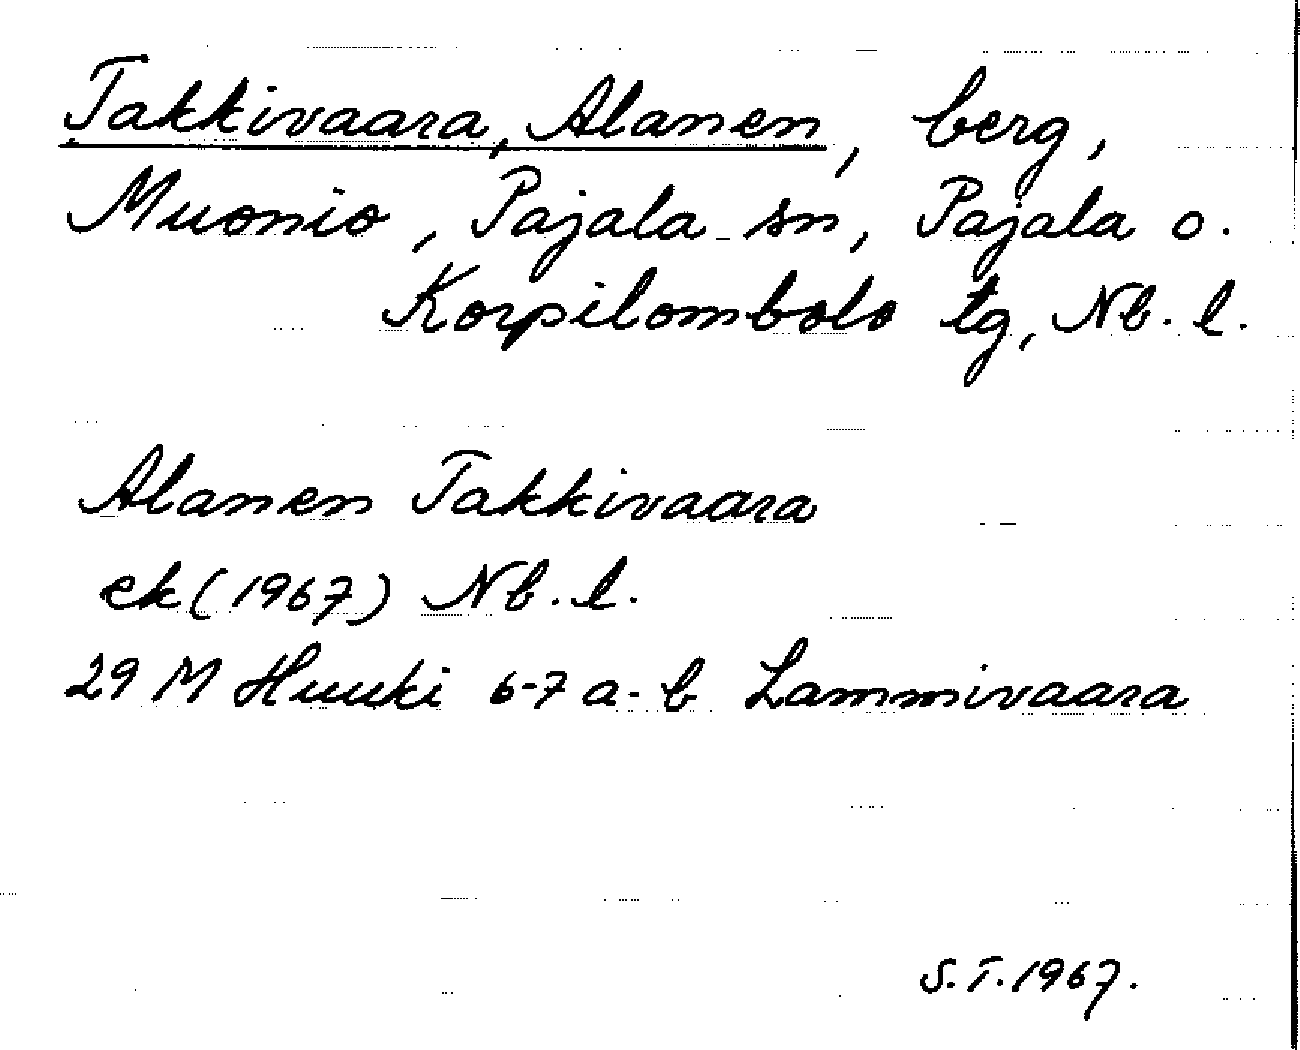 Takkivaara, Alanen, berg,
Muonio, Pajala sn, Pajala o.
Korpilombolo tg, Nb. l.
Alanen Takkivaara
ek (1967) Nb. l.
29 M Huuki 6-7 a-b Lammivaara
S.T. 1967.